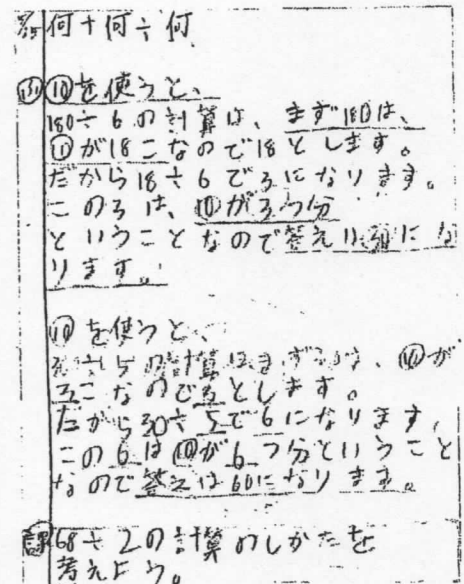 何十何÷何
⑩を使うと、
180÷6の計算は、まず180は、
⑩が18こなので18とします。
だから18÷6で3になります。
この3は、⑩が3つ分
ということなので答えは30にな
ります。
⑩を使うと、
の計算はまず は、⑩が
こなので とします。
だから30÷5で6になります。
この6は⑩が6つ分ということ
なので答えは60になります。
課 68÷2の計算のしかたを
考えよう。